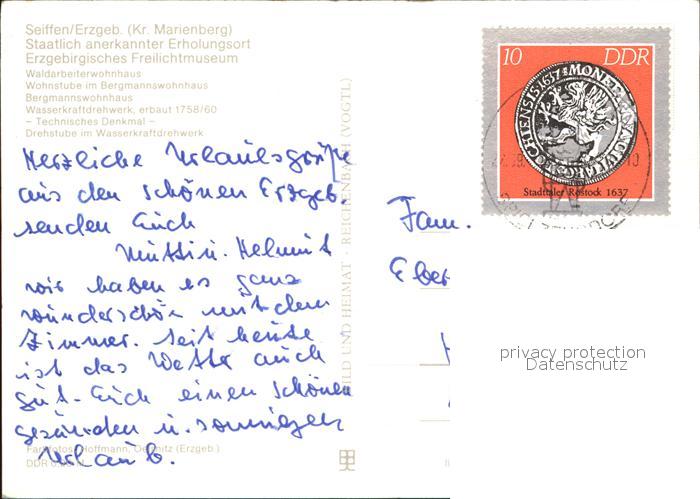 Seiffen/Erzgeb. (Kr. Marienberg)
Staatlich anerkannter Erholungsort
Erzgebirgisches Freilichtmuseum
Waldarbeiterwohnhaus
Wohnstube im Bergmannswohnhaus
Bergmannswohnhaus
Wasserkraftdrehwerk, erbaut 1758/60
– Technisches Denkmal –
Drehstube im Wasserkraftdrehwerk
Herzliche Urlaubsgrüße
aus den schönen Erzgeb.
senden Euch
Mutti u. Helmut
wir haben es ganz
wunderschön mit dem
Zimmer. Seit heute
ist das Wetter auch
gut. Euch einen schönen
gesunden u. sonnigen
Urlaub.
Farbfotos: Hoffmann, (Erzgeb.)
DDR
BILD UND HEIMAT · REICHENBACH (VOGTL)
10 DDR
Stadttaler Rostock 1637
Fam.
Eber
privacy protection
Datenschutz